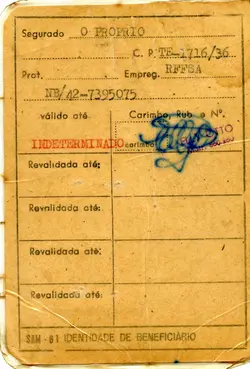 Segurado O PROPRIO
C. P. TE-1716/36
Prof. Empreg. RFFSA
NB/42-7395075
válido até Carimbo, Rub. e Nº.
INDETERMINADO carimbo
Revalidada até:
Revalidada até:
Revalidada até:
Revalidada até:
SAM - 61 IDENTIDADE DE BENEFICIÁRIO